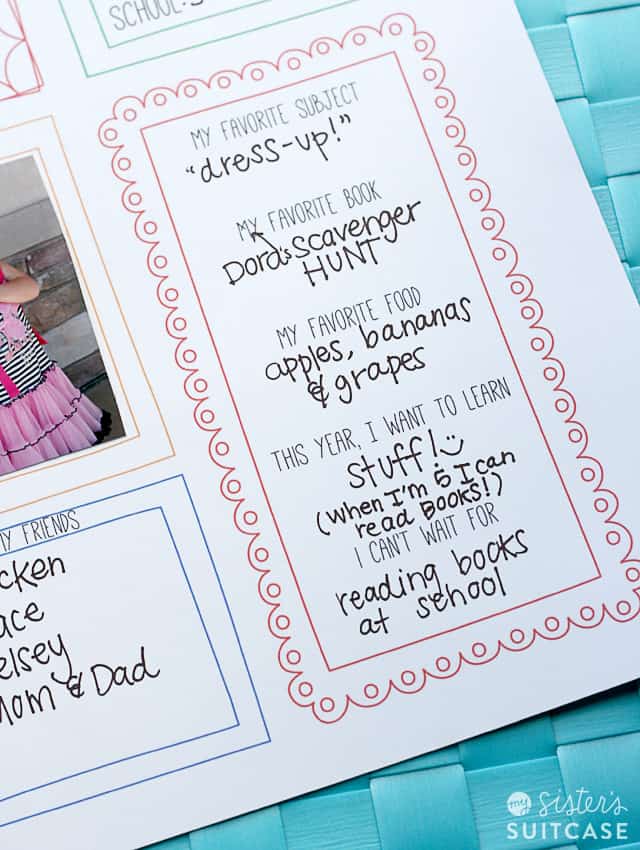 SCHOOL:
MY FAVORITE SUBJECT
"dress-up!"
MY FAVORITE BOOK
Dora's Scavenger
HUNT
MY FAVORITE FOOD
apples, bananas
& grapes
THIS YEAR, I WANT TO LEARN
stuff! :)
(when I'm 5 I can
read BOOKS!)
I CAN'T WAIT FOR
reading books
at school
MY FRIENDS
Mom & Dad
my sister's
SUITCASE